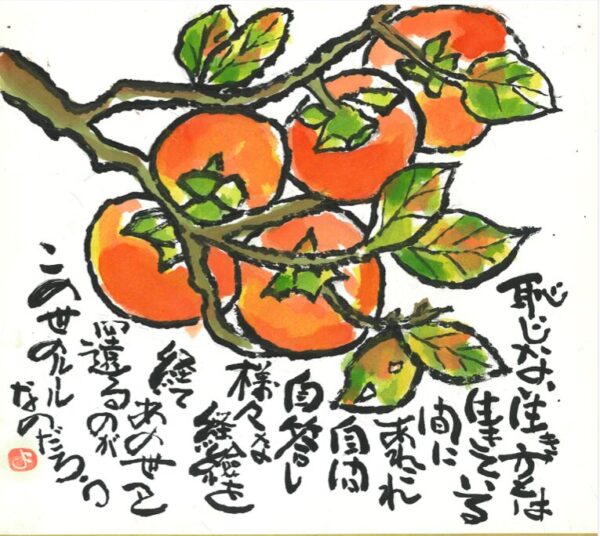 恥じない生き方とは
生きている
間に
あれこれ
自問
自答し
様々な
経て
あの世
るのが
この世のルール
なのだろう。